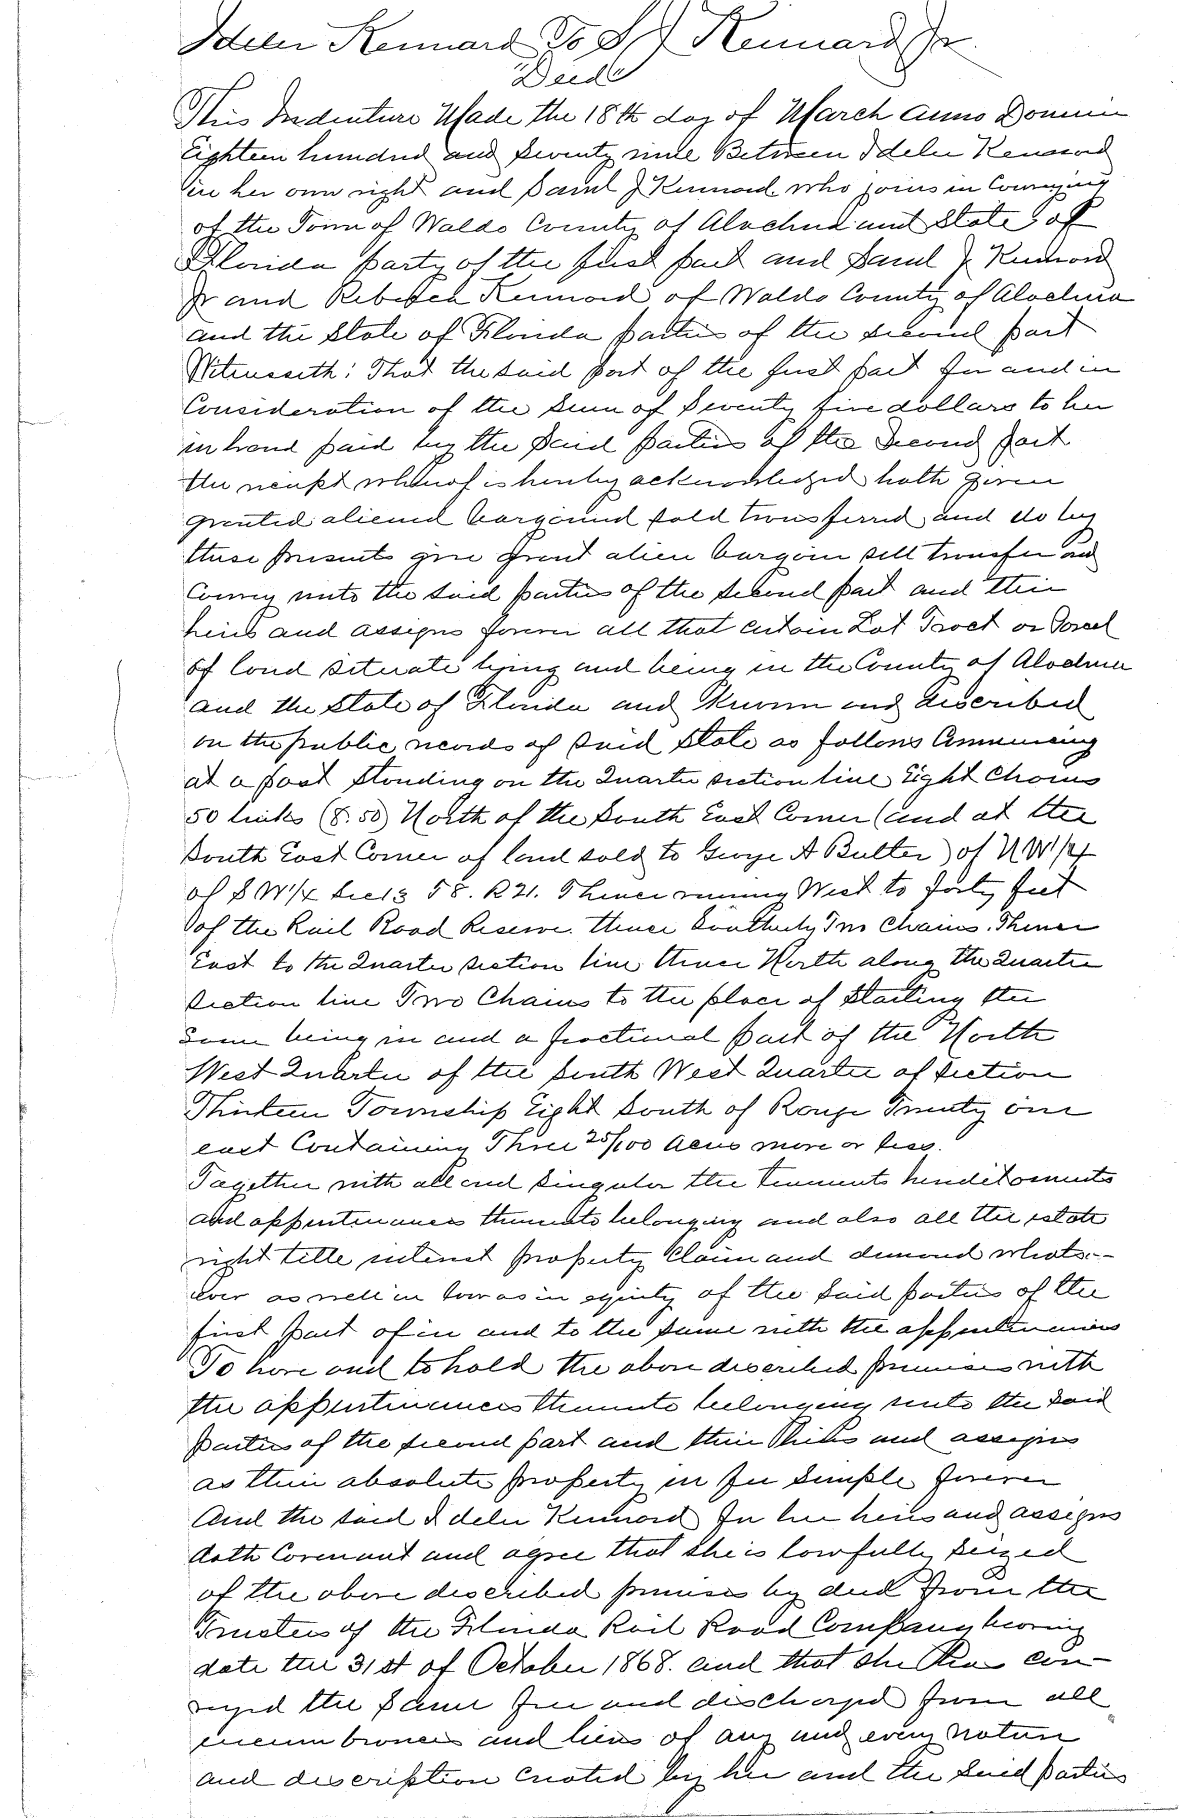 Ideler Kennard To S J Kennard Jr
"Deed"
This Indenture Made the 18th day of March Anno Domini
Eighteen hundred and Seventy nine Between Ideler Kennard
in her own right and Saml J Kennard who joins in Conveying
of the Town of Waldo County of Alachua and State of
Florida party of the first part and Saml J Kennard
Jr and Rebecca Kennard of Waldo County of Alachua
and the State of Florida parties of the second part
Witnesseth: That the said part of the first part for and in
Consideration of the Sum of Seventy five dollars to her
in hand paid by the Said parties of the Second part
the receipt whereof is hereby acknowledged hath given
granted aliened bargained sold transferred and do by
these presents give grant alien bargain sell transfer and
Convey unto the said parties of the second part and their
heirs and assigns forever all that certain Lot Tract or Parcel
of land situate lying and being in the County of Alachua
and the State of Florida and Known and described
on the public records of said State as follows Commencing
at a post standing on the Quarter section line Eight Chains
50 links (8.50) North of the South East Corner (and at the
South East Corner of land sold to George A Butler) of NW 1/4
of SW 1/4 Sec 13 T 8. R 21. Thence running West to forty feet
of the Rail Road Reserve. thence Southerly Two Chains. Thence
East to the Quarter section line thence North along the Quarter
section line Two Chains to the place of Starting the
same being in and a fractional part of the North
West Quarter of the South West Quarter of Section
Thirteen Township Eight South of Range Twenty one
east Containing Three 25/100 Acres more or less.
Together with all and singular the tenements hereditaments
and appurtenances thereunto belonging and also all the estate
right title interest property Claim and demand whatso-
ever as well in law as in equity of the said parties of the
first part of in and to the same with the appurtenances
To have and to hold the above described premises with
the appurtenances thereunto belonging unto the said
parties of the second part and their heirs and assigns
as their absolute property in fee simple forever
And the said Ideler Kennard for her heirs and assigns
doth Covenant and agree that she is lawfully seized
of the above described premises by deed from the
Trustees of the Florida Rail Road Company bearing
date the 31st of October 1868. and that she has con-
veyed the same free and discharged from all
encumbrances and liens of any and every nature
and description created by her and the said parties